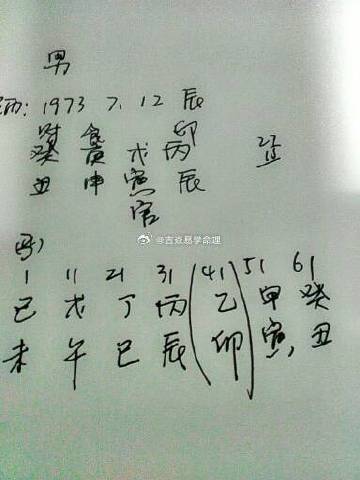 男
1973 7. 12 辰
财 食 印
癸 庚 戊 丙
丑 申 寅 辰
官
@吉炎易学命理
1 11 21 31 (41) 51 61
己 戊 丁 丙 乙 甲 癸
未 午 巳 辰 卯 寅 丑